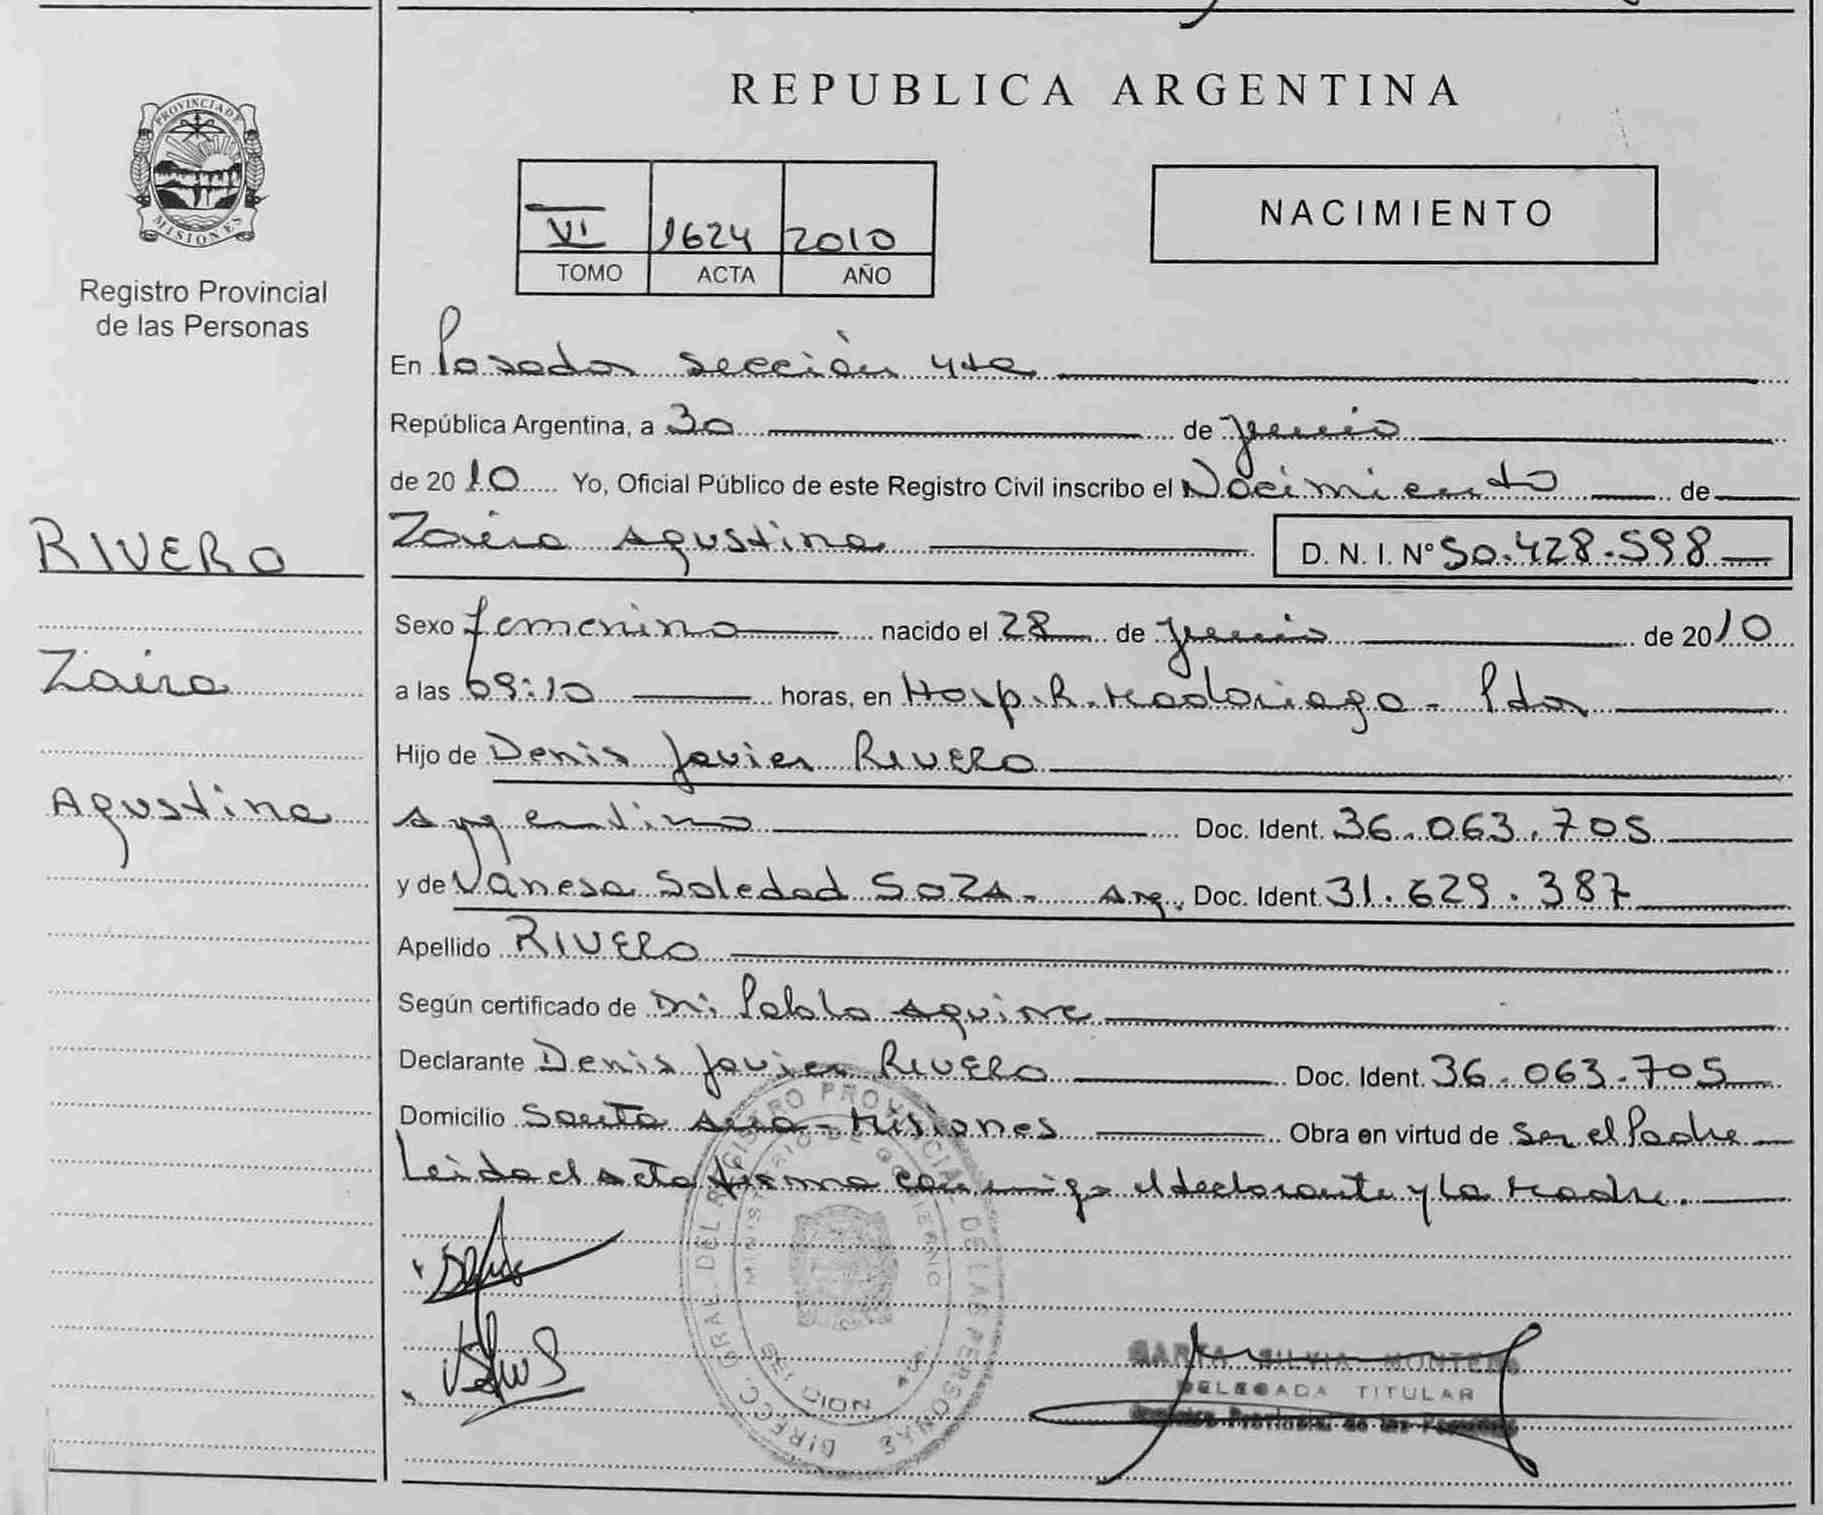 REPUBLICA ARGENTINA
PROVINCIA DE MISIONES
Registro Provincial
de las Personas
VI 1624 2010
TOMO ACTA AÑO
NACIMIENTO
En Posadas sección 4ta
República Argentina, a 30 de Junio
de 2010 Yo, Oficial Público de este Registro Civil inscribo el Nacimiento de
RIVERO
Zaira Agustina D. N. I. N° 50.428.598
Sexo femenino nacido el 28 de Junio de 2010
Zaira
a las 09:10 horas, en Hosp. R. Madariaga - Pdas
Hijo de Denis Javier RIVERO
Agustina
Argentino Doc. Ident. 36.063.705
y de Vanesa Soledad SOZA - Arg. Doc. Ident. 31.629.387
Apellido RIVERO
Según certificado de Dr. Pablo Aguirre
Declarante Denis Javier RIVERO Doc. Ident. 36.063.705
Domicilio Santa Ana - Misiones Obra en virtud de Ser el Padre
Leida el acta firma conmigo el declarante y la Madre.
DIRECC. GRAL. DEL REGISTRO PROVINCIAL DE LAS PERSONAS
MINISTERIO DE GOBIERNO
MARTA SILVIA MONTERO
DELEGADA TITULAR
Registro Provincial de las Personas